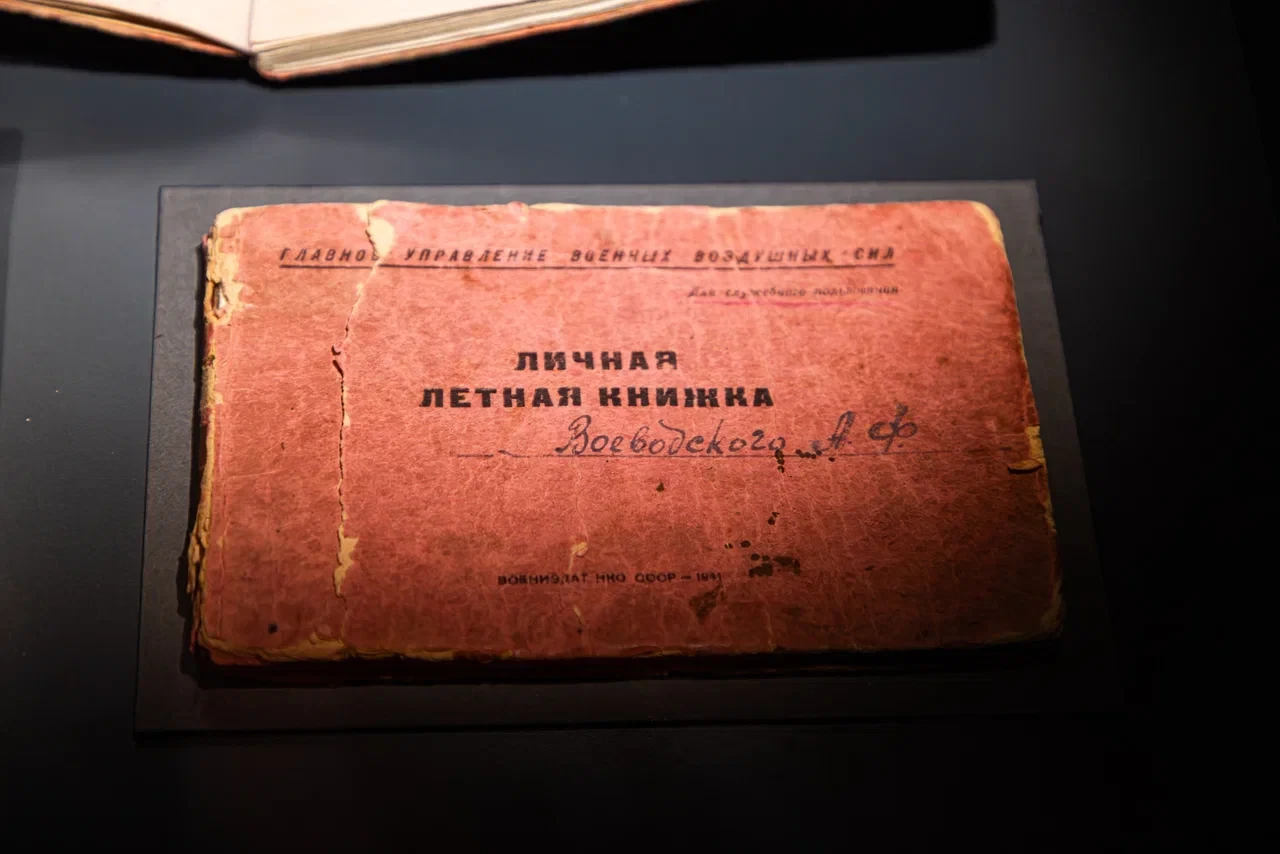 ГЛАВНОЕ УПРАВЛЕНИЕ ВОЕННЫХ ВОЗДУШНЫХ СИЛ
Для служебного пользования
ЛИЧНАЯ
ЛЕТНАЯ КНИЖКА
Воеводского А Ф
ВОЕНИЗДАТ НКО СССР — 1941